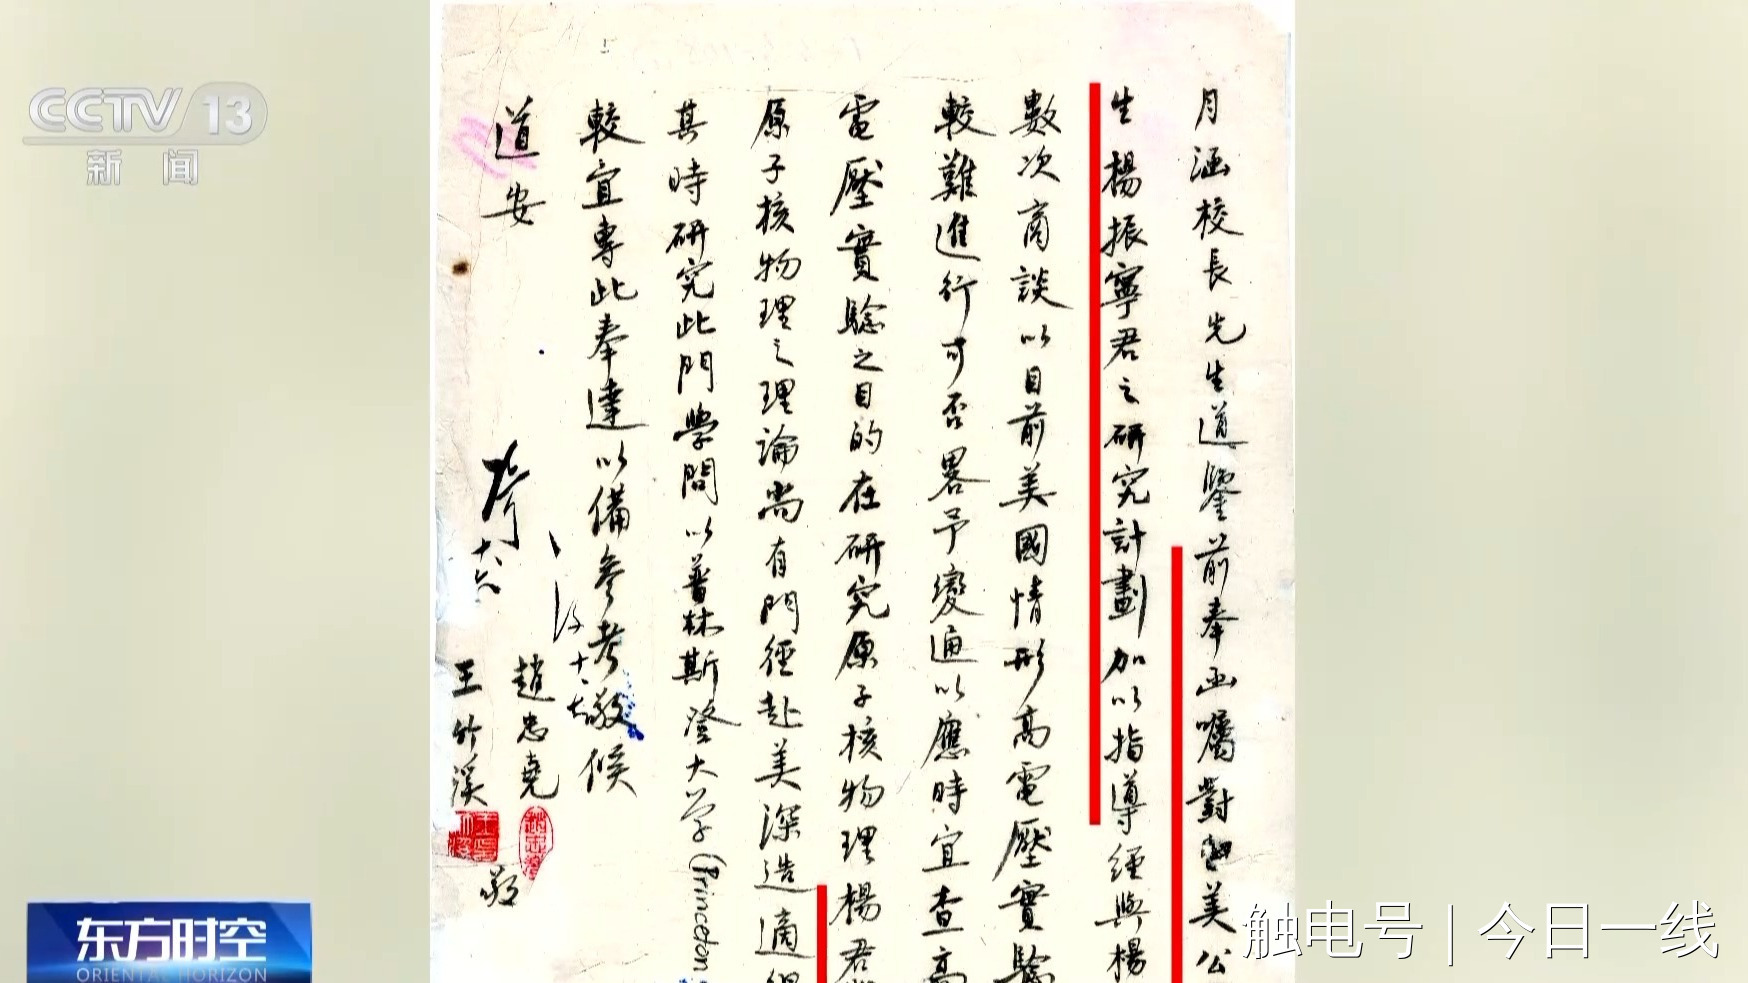 CCTV 13
新闻
月涵校長先生道鑒前奉函囑對留美公
生楊振寧君之研究計劃加以指導經與楊
數次商談以目前美國情形高電壓實驗
較難進行可否畧予變通以應時宜查高
電壓實驗之目的在研究原子核物理楊君
原子核物理之理論尚有門徑赴美深造適
其時研究此門學問以普林斯登大学(Princeton
較宜專此奉達以備參考敬候
道安
趙忠堯
王竹溪
敬
十六
东方时空
ORIENTAL HORIZON
触电号 | 今日一线